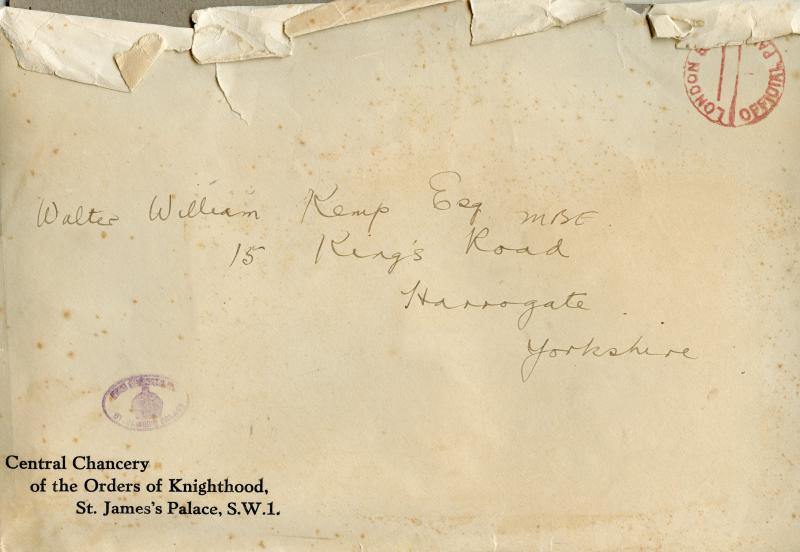 LONDON
OFFICIAL PA
Walter William Kemp Esq MBE
15 King's Road
Harrogate
Yorkshire
Central Chancery
of the Orders of Knighthood,
St. James's Palace, S.W.1.